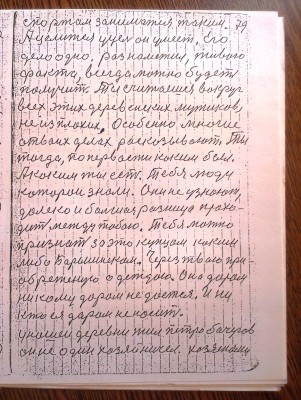 спортом заниматся таким. 79
А успится успел он умеет. Его
дело одно. разнаметил, живого
факто, всегда можно будет
получит. Ты считаешся вокруг
всех этих деревенских мужиков,
не из плохих, Особенно многие
о твоих делах рассказывают. Ты
тогда, по первасти каким был.
А каким ты есть. Тебя люди
которои знали. Они не узнают,
далеко и большая разница прохо-
дит между тобою. Тебя можно
признат за это купцом каким
либо Барышником. Через твою при-
обретенную одеждою. Она даром
никому даром не дается, И ни
кто ея даром не носит.
у нашей деревни жил петро бочуров
он не один хозяйничел. хозяеваю